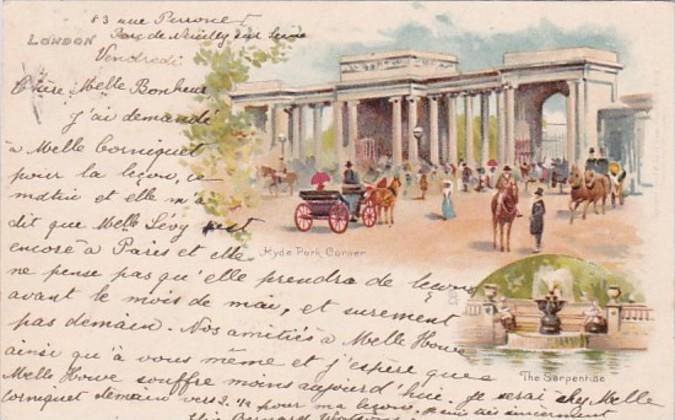 83 rue Perronet
Parc de Neuilly sur Seine
LONDON
Vendredi
Chère Melle Bonheur
j'ai demandé
à Melle Corniquet
pour la leçon, ce
matin et elle m'a
dit que Melle Lévy est
encore à Paris et elle
Hyde Park Corner
ne pense pas qu'elle prendra de leçons
avant le mois de mai, et surement
pas demain. Nos amitiés à Melle Howe
ainsi qu'à vous même et j'espère que
The Serpentine
Melle Howe souffre moins aujourd'hui. Je serai chez Melle
Corniquet demain vers 2.½ pour ma leçon.
sincerement